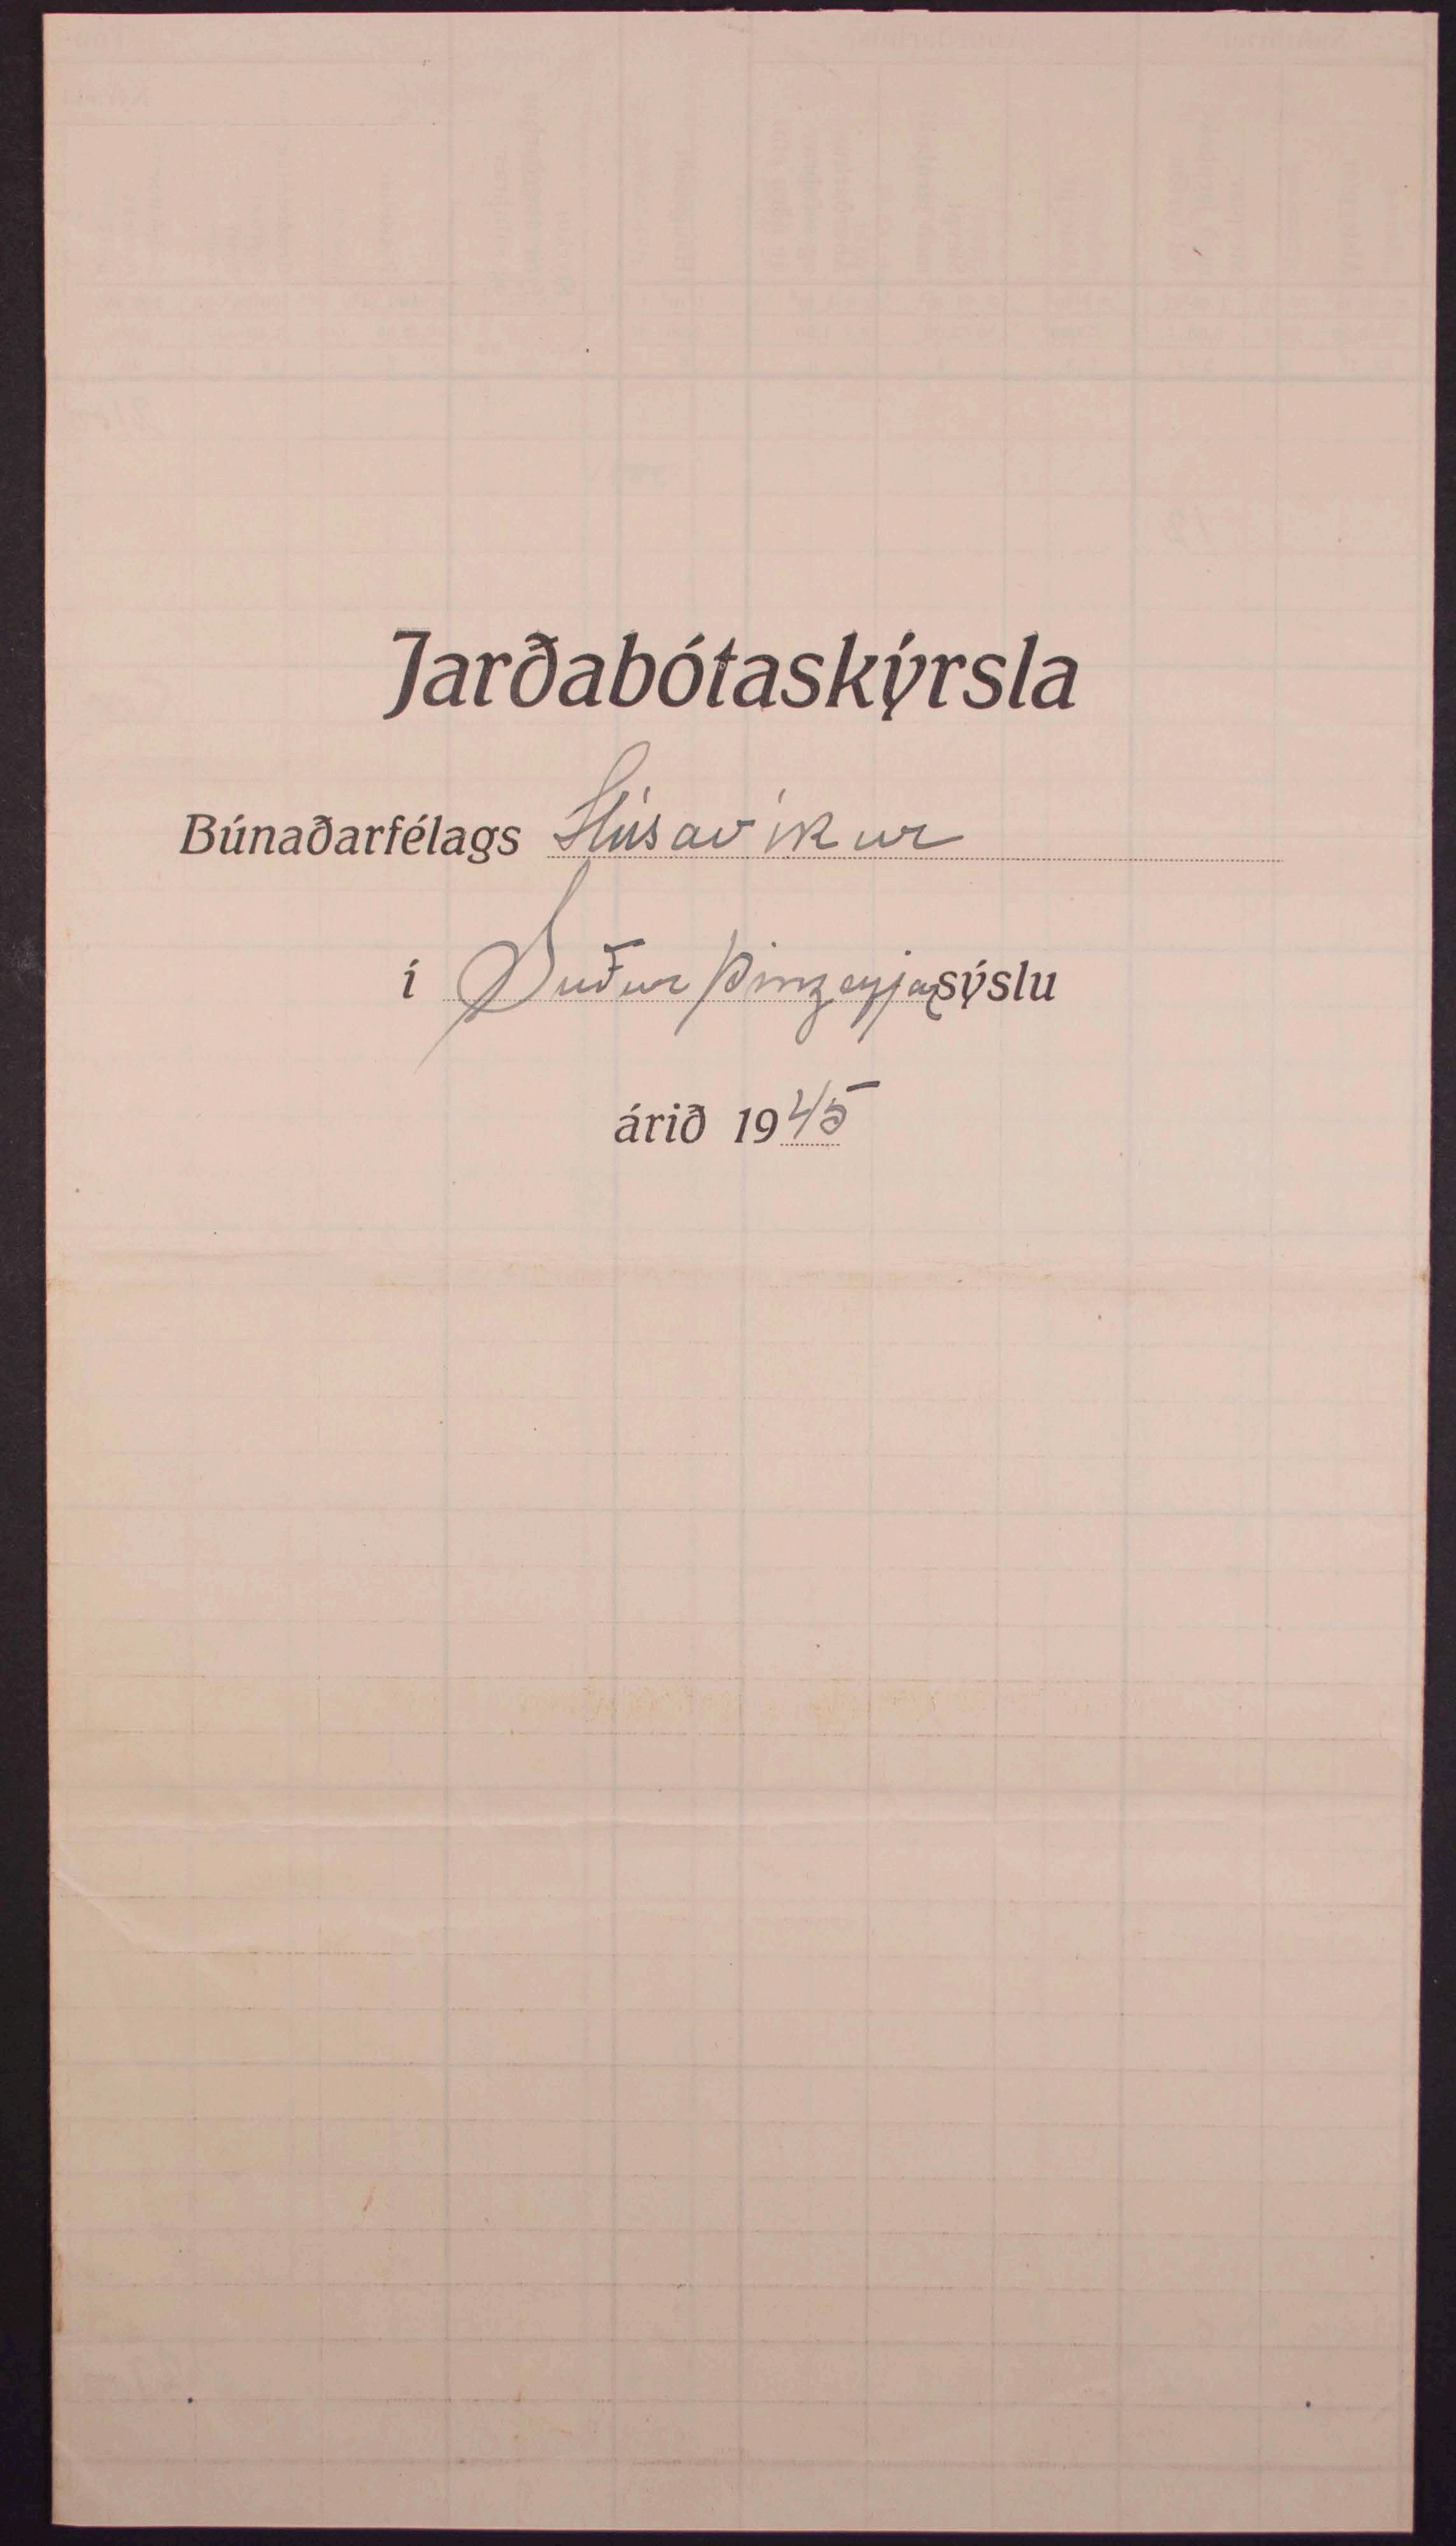 Jarðabótaskýrsla
Búnaðarfélags Húsavíkur
í Suður Þingeyjarsýslu
árið 1945